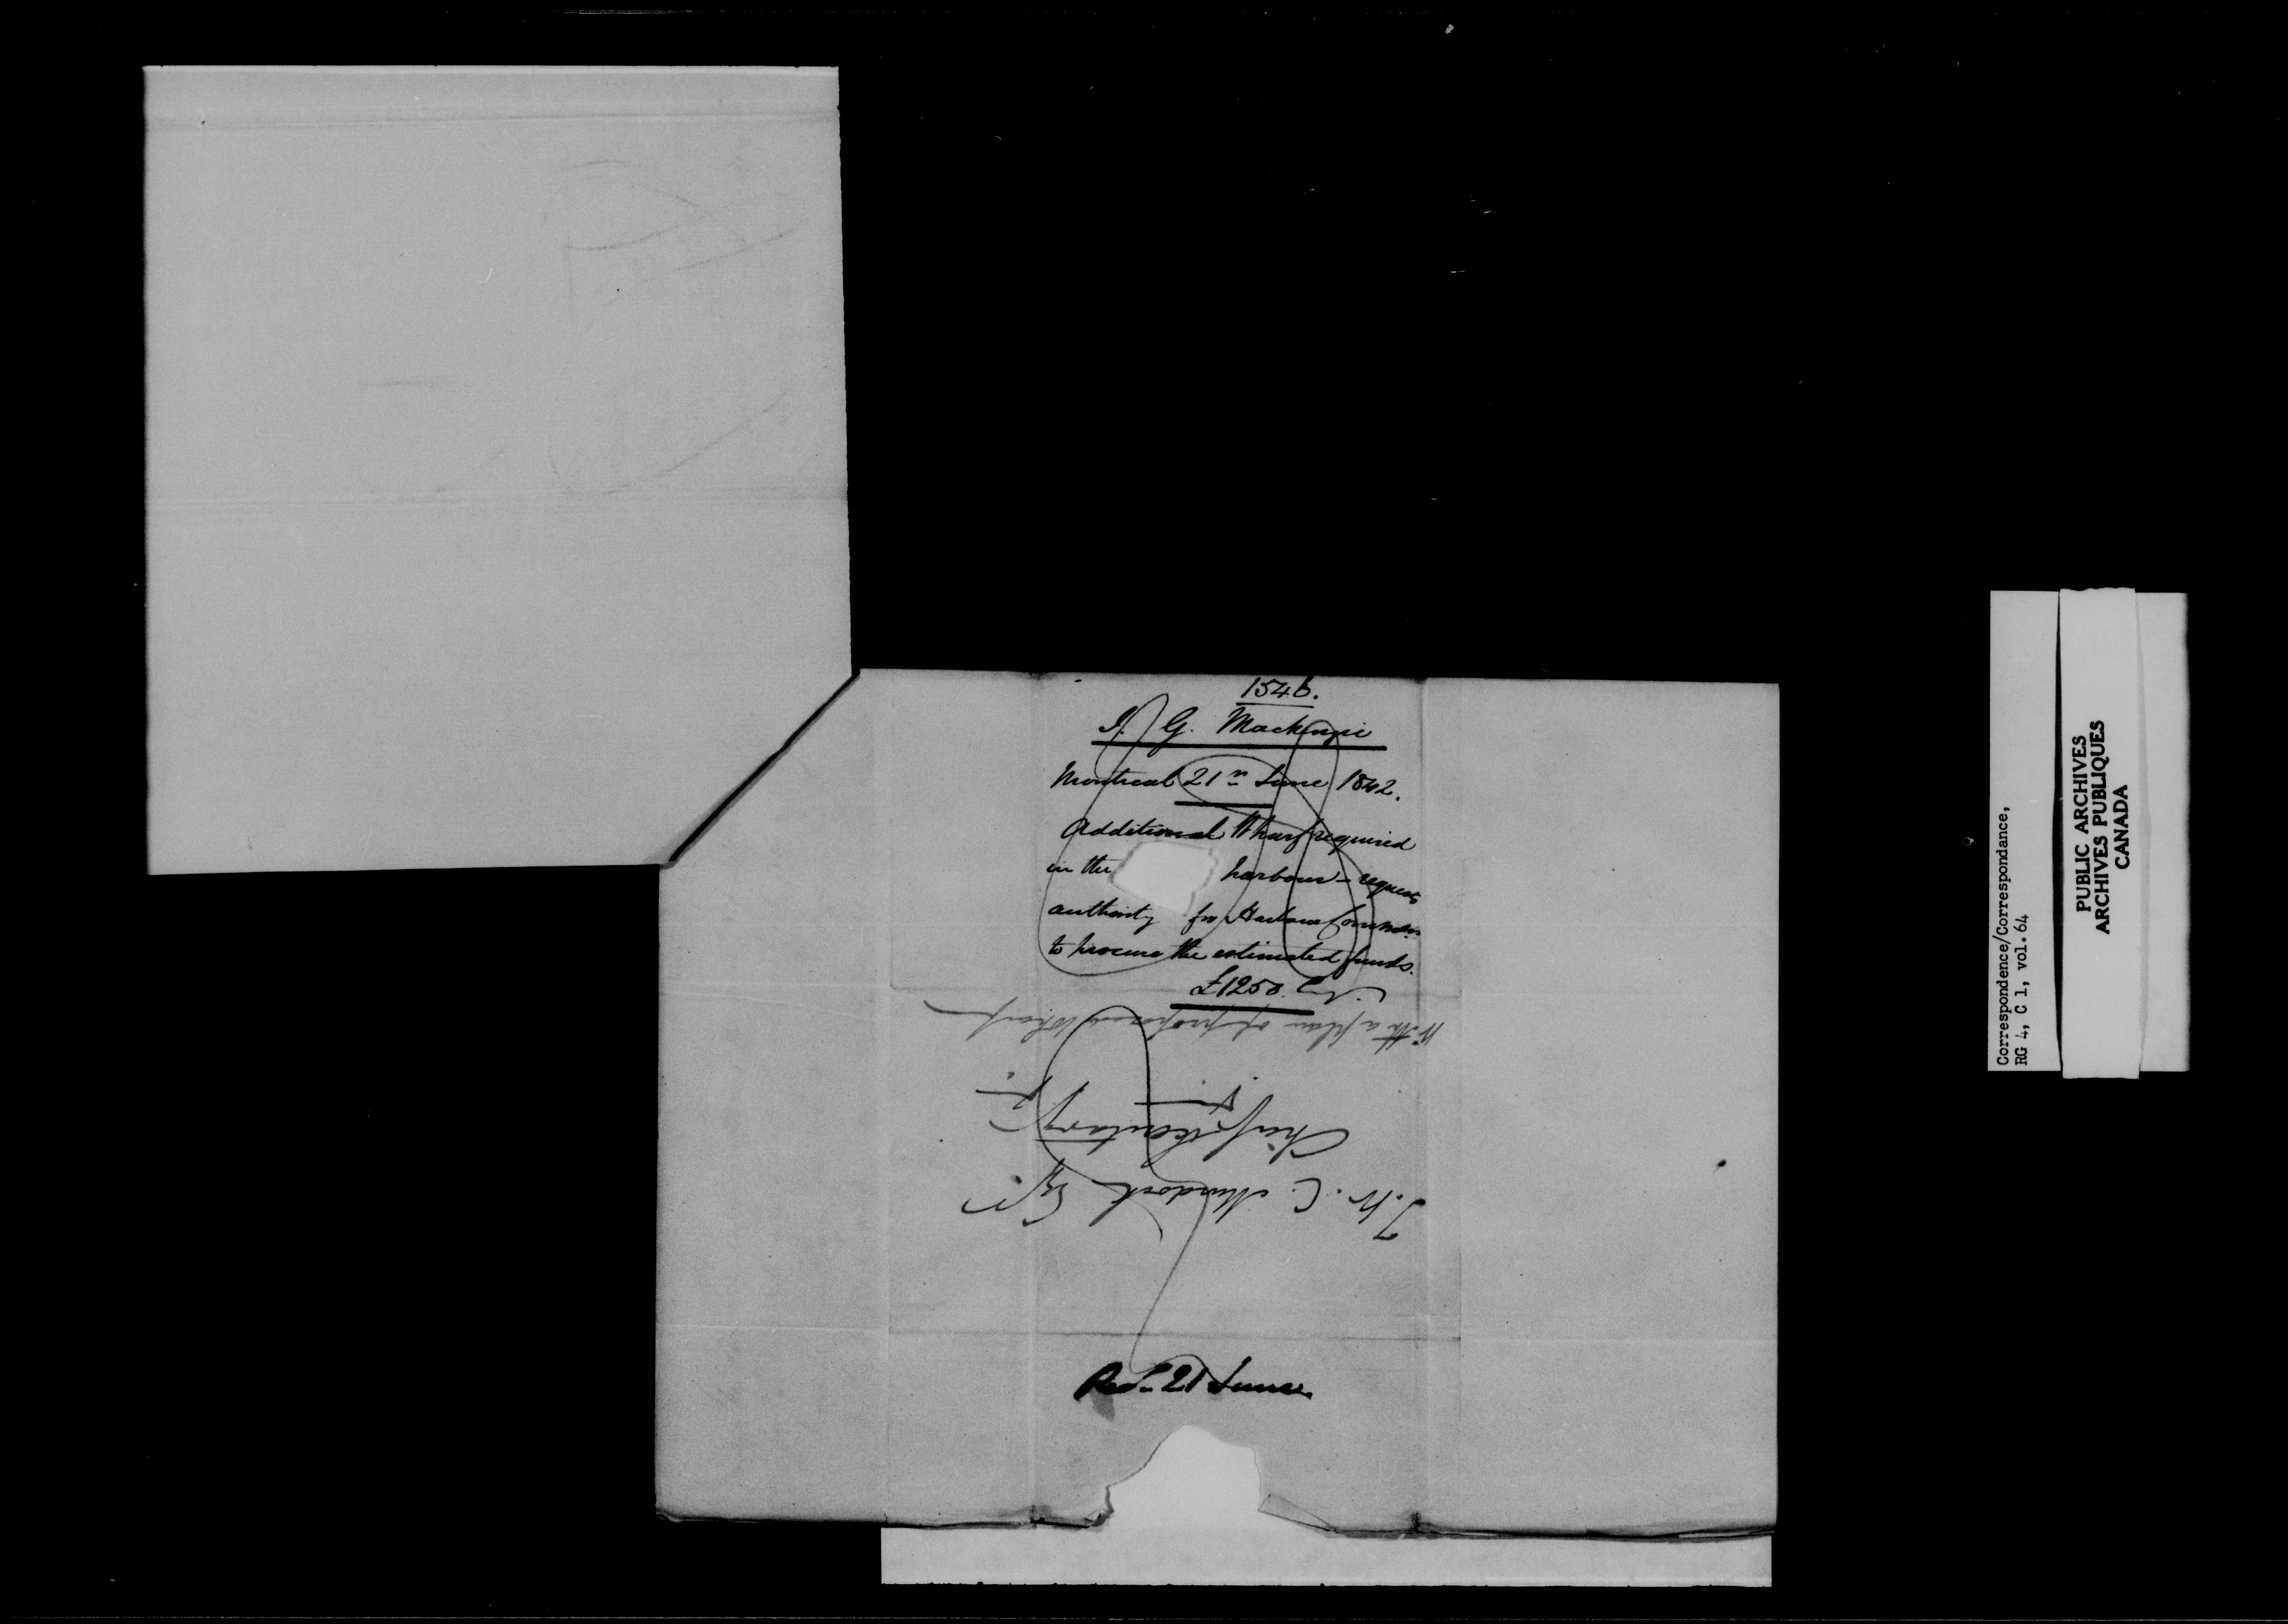 1546.
J. G. Mackenzie
Montreal 21st June 1842.
Additional Wharf required
in the harbour – requests
authority for Harbour Commrs
to procure the estimated funds.
£1250. Cy.
With a plan of proposed Wharf
T. W. C. Murdoch Esqr
Chief Secretary
&c. &c.
Recd. 21 June.
Correspondence/Correspondance,
RG 4, C 1, vol. 64
PUBLIC ARCHIVES
ARCHIVES PUBLIQUES
CANADA